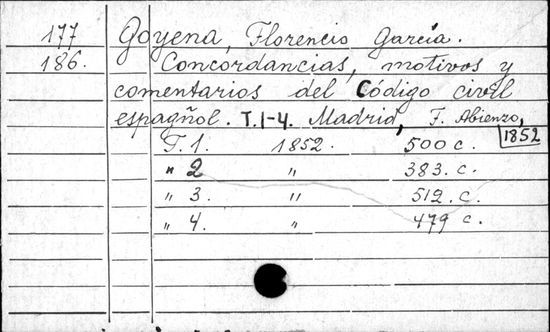 177 Goyena, Florencio García.
186. Concordancias, motivos y
comentarios del Código civil
espagñol. T.1-4. Madrid, F. Abienzo,
1852
T. 1. 1852. 500 c.
" 2 " 383. c.
" 3. " 512. c.
" 4. " 479 c.